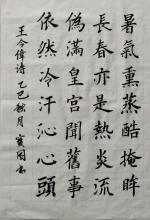 暑氣熏蒸酷掩眸
長春亦是熱炎流
偽滿皇宮聞舊事
依然冷汗沁心頭
王令偉诗 乙巳秋月 寶國书